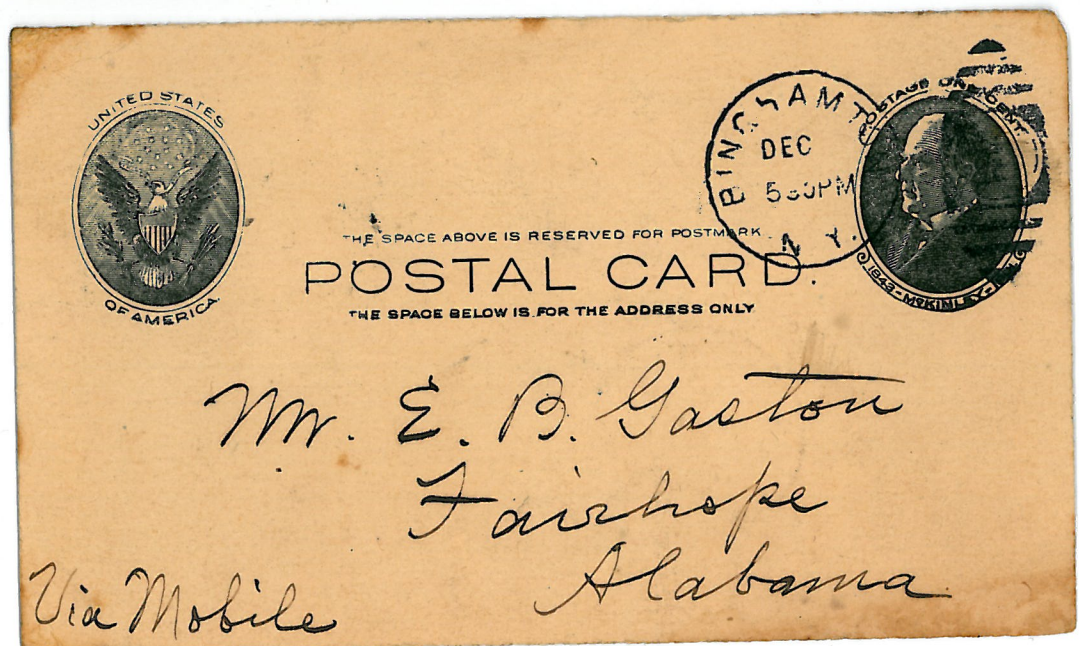 UNITED STATES
OF AMERICA.
BINGHAMT
DEC
5 30PM
N. Y.
POSTAGE ONE CENT.
1843-McKINLEY-
THE SPACE ABOVE IS RESERVED FOR POSTMARK
POSTAL CARD.
THE SPACE BELOW IS FOR THE ADDRESS ONLY
Mr. E. B. Gaston
Fairhope
Alabama
Via Mobile